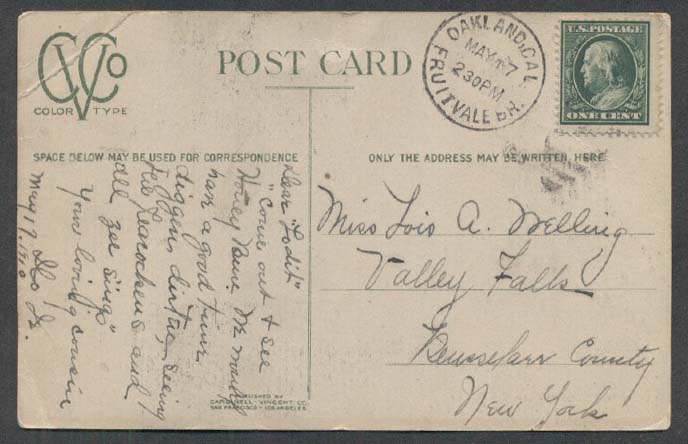 CVCo
COLOR TYPE
POST CARD
OAKLAND, CAL.
MAY 17
2 30 PM
FRUITVALE BR.
U.S. POSTAGE
ONE CENT
SPACE BELOW MAY BE USED FOR CORRESPONDENCE
ONLY THE ADDRESS MAY BE WRITTEN HERE
Dear "Lodit"
"Come out & see
Honey Bunc
have a good time
diggin dirt, seeing
the Peacockens and
all zee sings"
Your loving cousin
Geo Jr.
May 17, 1910
Miss Lois A. Welling
Valley Falls
Rensselaer County
New York
PUBLISHED BY
CARDINELL-VINCENT CO.
SAN FRANCISCO - LOS ANGELES